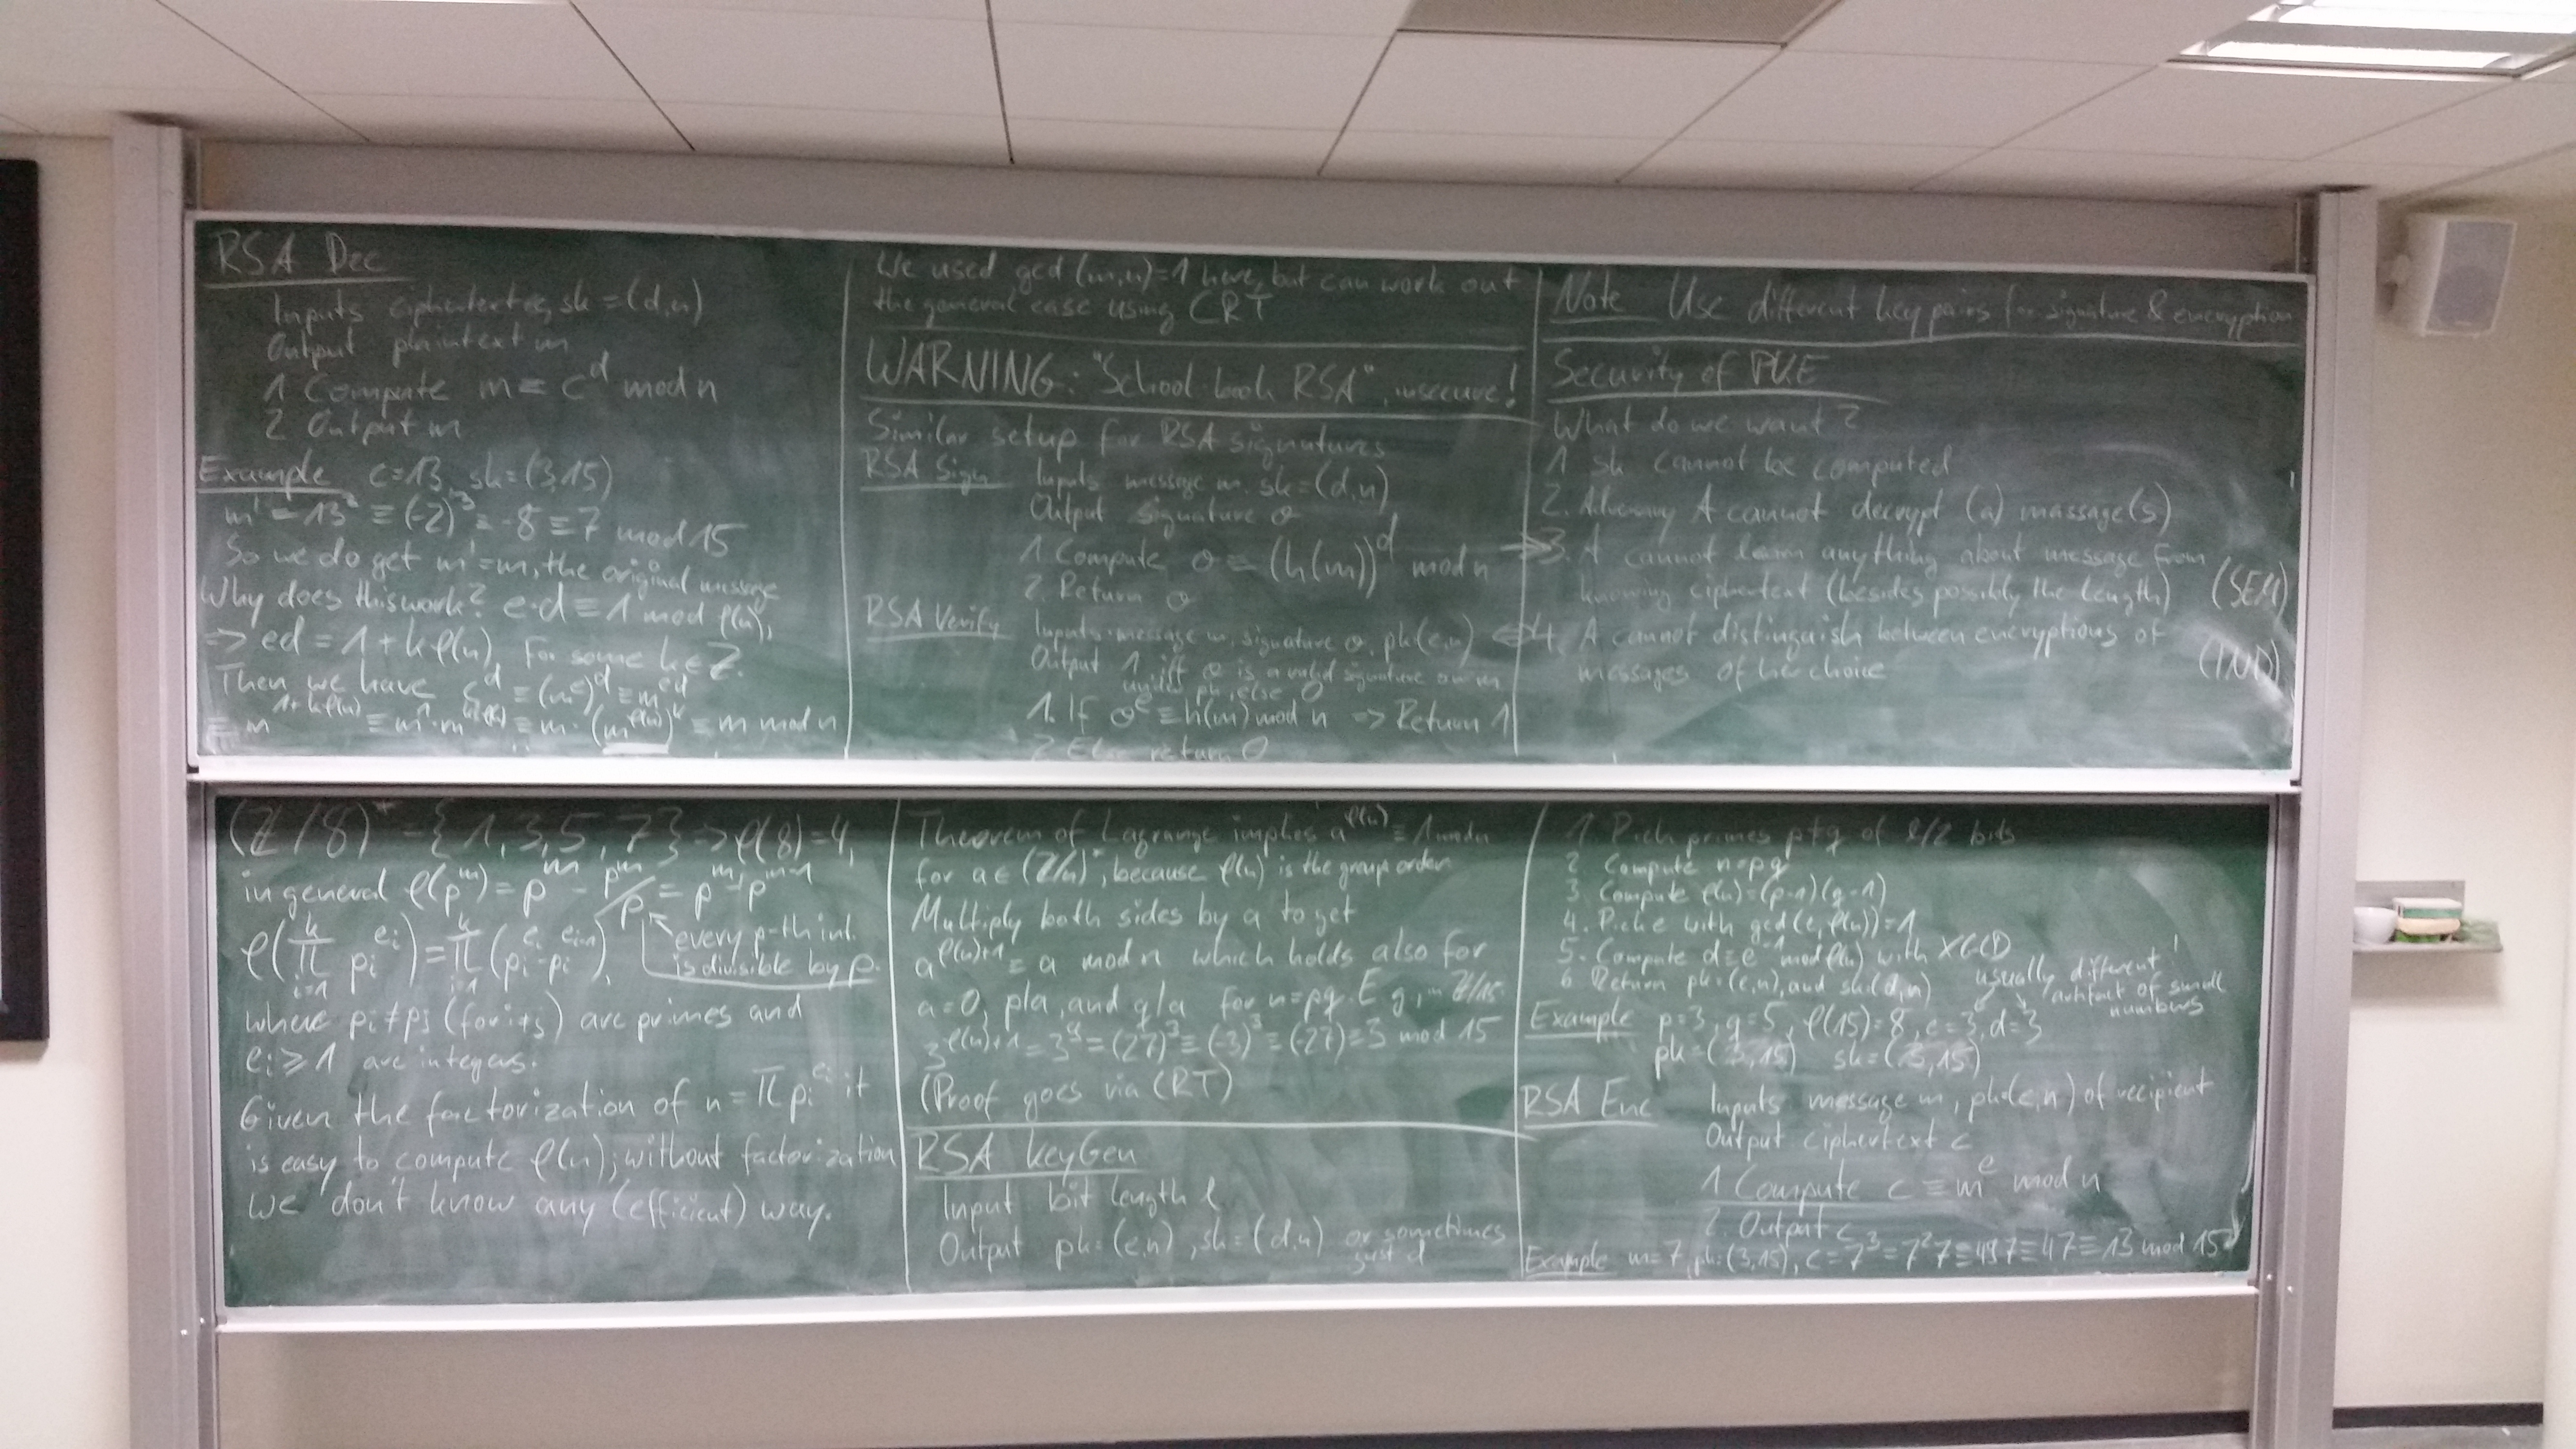 RSA Dec
Inputs ciphertext c, sk = (d,n)
Output plaintext m
1 Compute m ≡ c^d mod n
2 Output m
Example c=13, sk=(3,15)
m' = 13^3 ≡ (-2)^3 ≡ -8 ≡ 7 mod 15
So we do get m'=m, the original message
Why does this work? e·d ≡ 1 mod φ(n),
=> ed = 1 + kφ(n) for some k∈Z.
Then we have c^d ≡ (m^e)^d ≡ m^ed
≡ m^1+kφ(n) ≡ m^1·m^kφ(n) ≡ m·(m^φ(n))^k ≡ m mod n
We used gcd(m,n)=1 here, but can work out
the general case using CRT
WARNING: "School book RSA", insecure!
Similar setup for RSA signatures
RSA Sign Inputs message m, sk=(d,n)
Output signature σ
1. Compute σ ≡ (h(m))^d mod n
2. Return σ
RSA Verify Inputs message m, signature σ, pk(e,n)
Output 1 iff σ is a valid signature on m
under pk, else 0
1. If σ^e ≡ h(m) mod n => Return 1
2 Else return 0
Note Use different key pairs for signature & encryption
Security of PKE
What do we want?
1 sk cannot be computed
2. Adversary A cannot decrypt (a) massage(s)
3. A cannot learn anything about message from
knowing ciphertext (besides possibly the length) (SEM)
4. A cannot distinguish between encryptions of
messages of her choice (IND)
(Z/8)* = {1,3,5,7} => φ(8)=4,
in general φ(p^m) = p^m - p^m/p = p^m - p^m-1
every p-th int.
is divisible by p.
φ(∏ i=1 k pi^ei) = ∏ i=1 k (pi^ei - pi^ei-1),
where pi≠pj (for i≠j) are primes and
ei ≥ 1 are integers.
Given the factorization of n = ∏pi^ei it
is easy to compute φ(n); without factorization
we don't know any (efficient) way.
Theorem of Lagrange implies a^φ(n) ≡ 1 mod n
for a∈(Z/n)*, because φ(n) is the group order
Multiply both sides by a to get
a^φ(n)+1 ≡ a mod n which holds also for
a=0, p|a, and q|a for n=pq. E.g. in Z/15:
3^φ(n)+1 = 3^9 = (27)^3 ≡ (-3)^3 ≡ (-27) ≡ 3 mod 15
(Proof goes via CRT)
RSA KeyGen
Input bit length ℓ
Output pk=(e,n), sk=(d,n) or sometimes
just d
1. Pick primes p≠q of ℓ/2 bits
2 Compute n=pq
3. Compute φ(n)=(p-1)(q-1)
4. Pick e with gcd(e,φ(n))=1
5. Compute d≡e^-1 mod φ(n) with XGCD
6 Return pk=(e,n), and sk=(d,n)
usually different!
artifact of small
numbers
Example p=3, q=5, φ(15)=8, e=3, d=3
pk=(3,15) sk=(3,15)
RSA Enc Inputs message m, pk=(e,n) of recipient
Output ciphertext c
1 Compute c ≡ m^e mod n
2. Output c
Example m=7, pk=(3,15), c=7^3=7^2 7≡49 7≡4 7≡13 mod 15